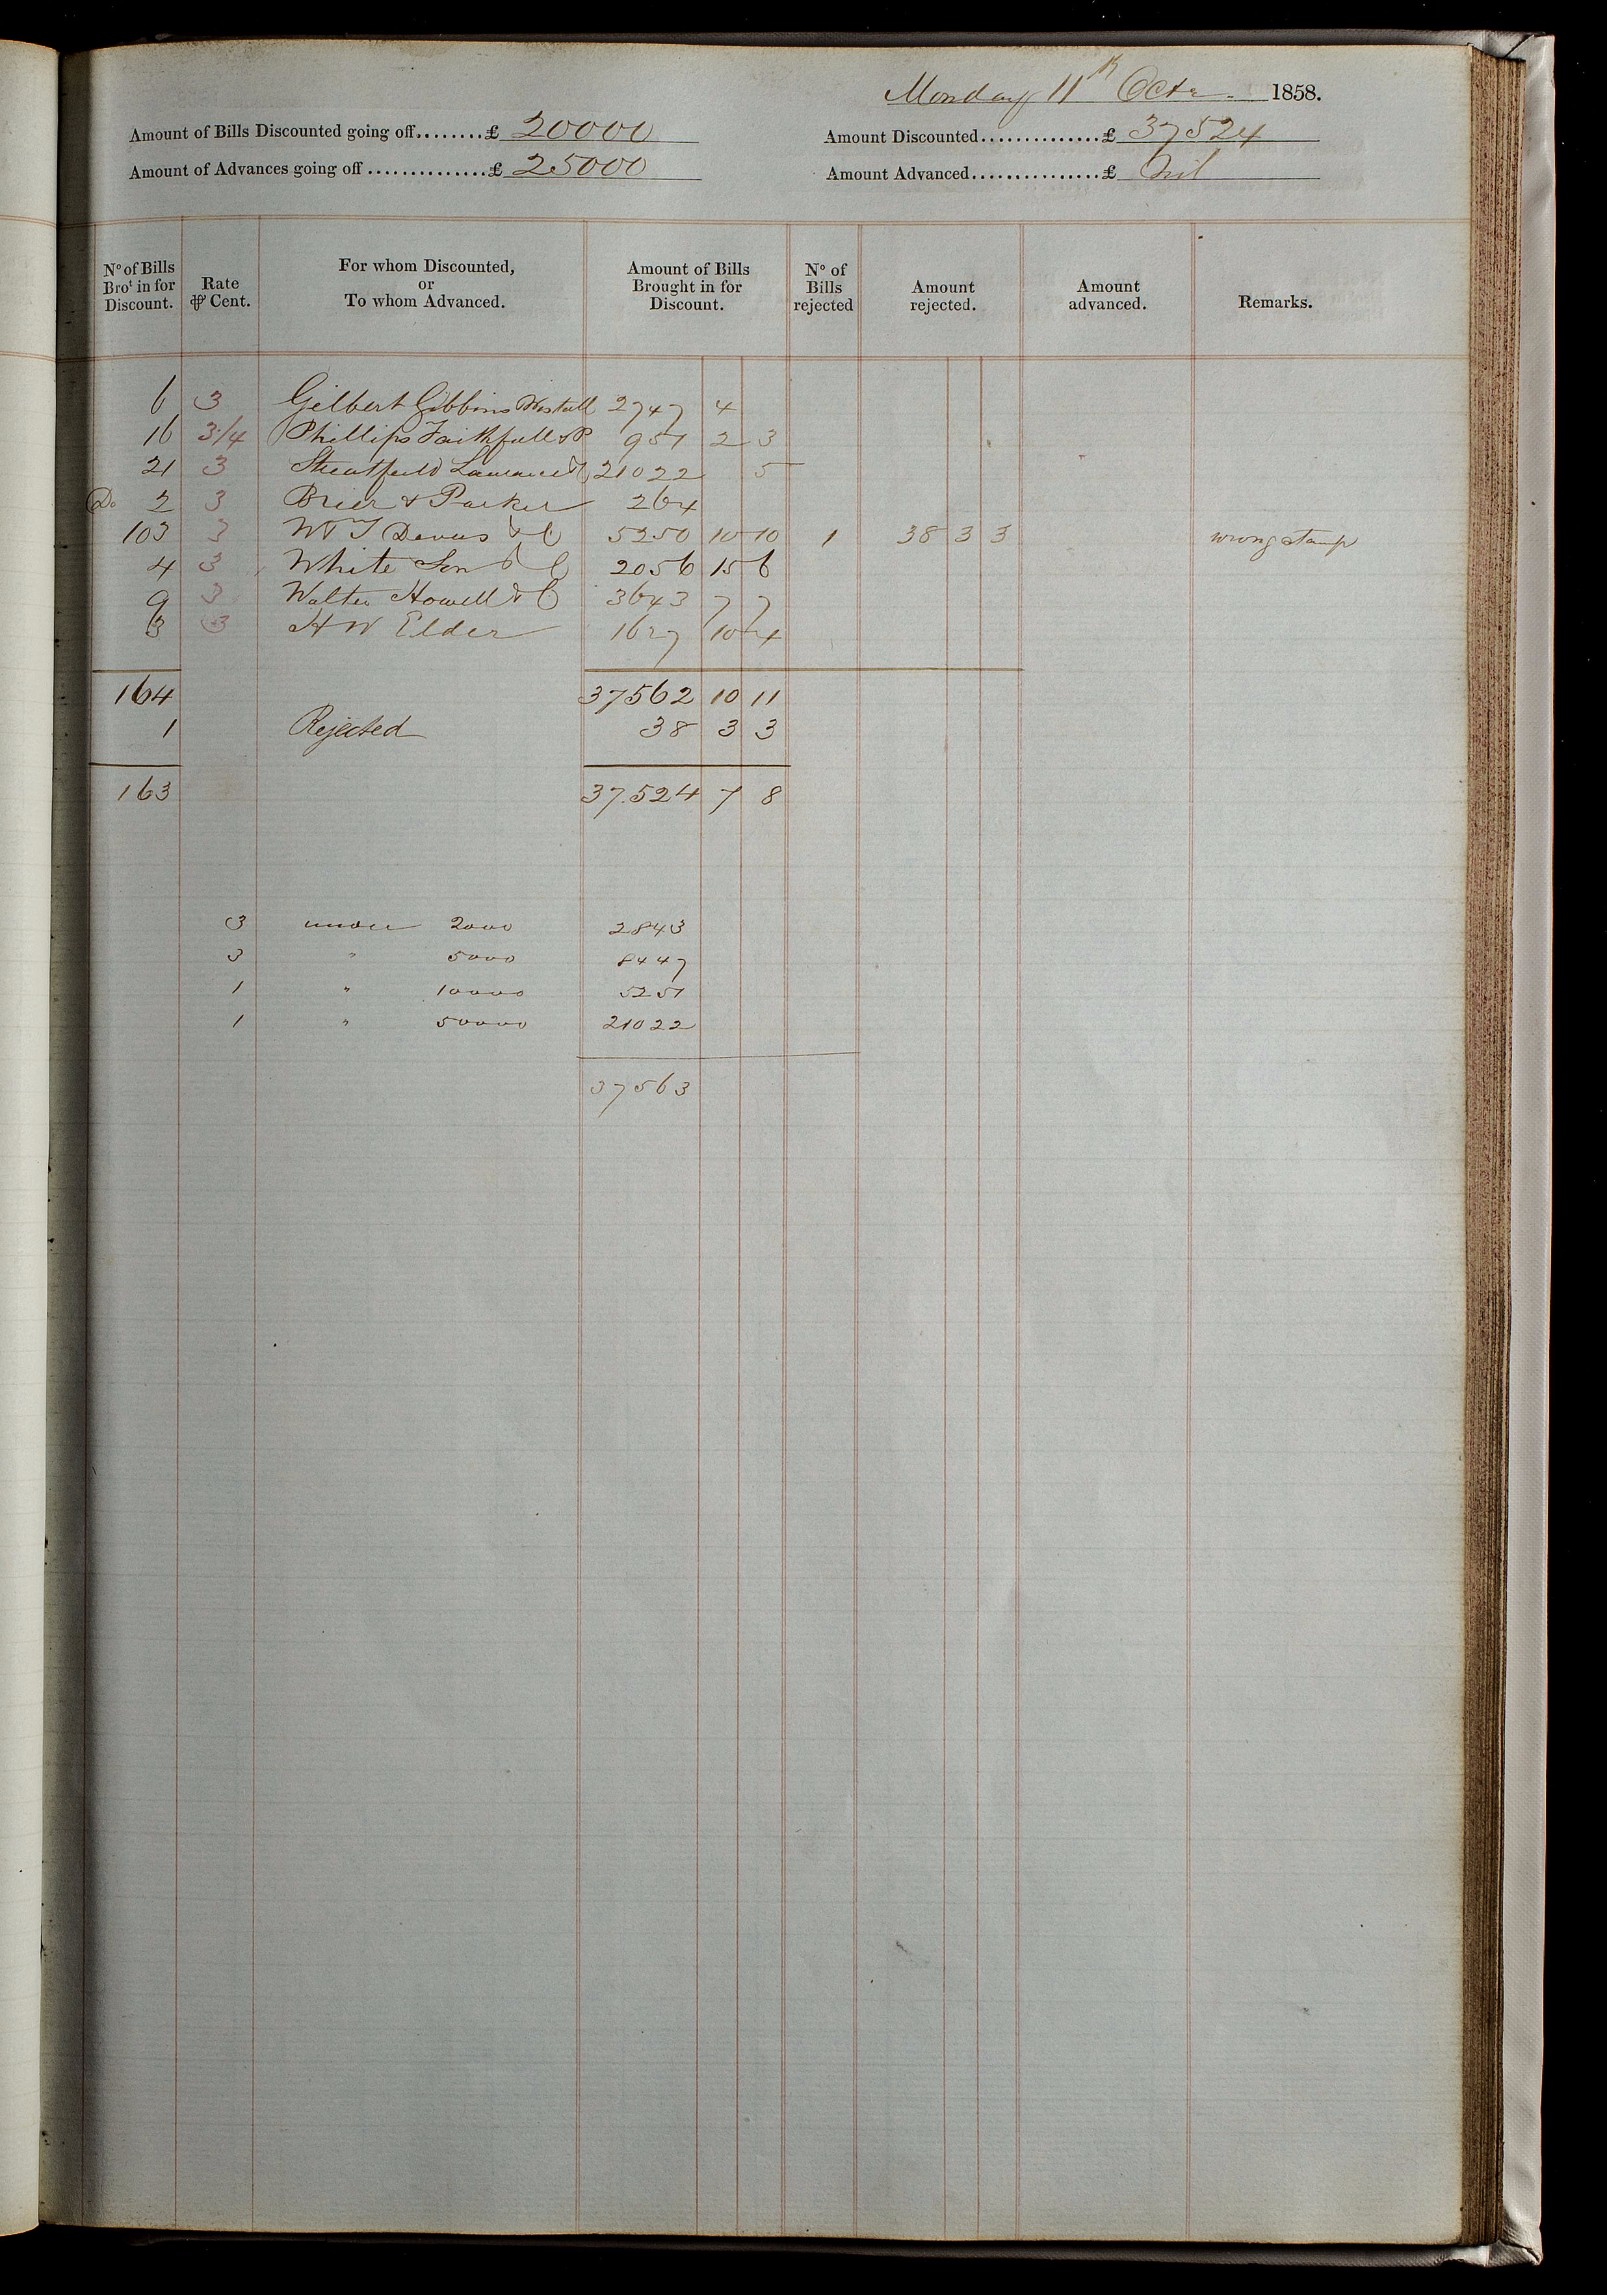 Monday 11th Octr. 1858.
Amount of Bills Discounted going off........£ 20000 Amount Discounted..............£ 37524
Amount of Advances going off..............£ 25000 Amount Advanced...............£ Nil
No of Bills Brot in for Discount. Rate ⅌ Cent. For whom Discounted, or To whom Advanced. Amount of Bills Brought in for Discount. No of Bills rejected Amount rejected. Amount advanced. Remarks.
6 3 Gilbert Gibbins Westall 2747 4
16 3 1/4 Phillips Faithfull & P 951 2 3
21 3 Streatfeild Laurence & C 21022 5
Do 2 3 Brier & Parker 264
103 3 W T Devas & C 5250 10 10 1 38 3 3 wrong stamp
4 3 White Son & C 2056 15 6
9 3 Walter Howell & C 3643 7 7
3 3 H W Elder 1627 10 4
164 37562 10 11
1 Rejected 38 3 3
163 37.524 7 8
3 under 2000 2843
3 " 5000 8447
1 " 10000 5251
1 " 50000 21022
37563